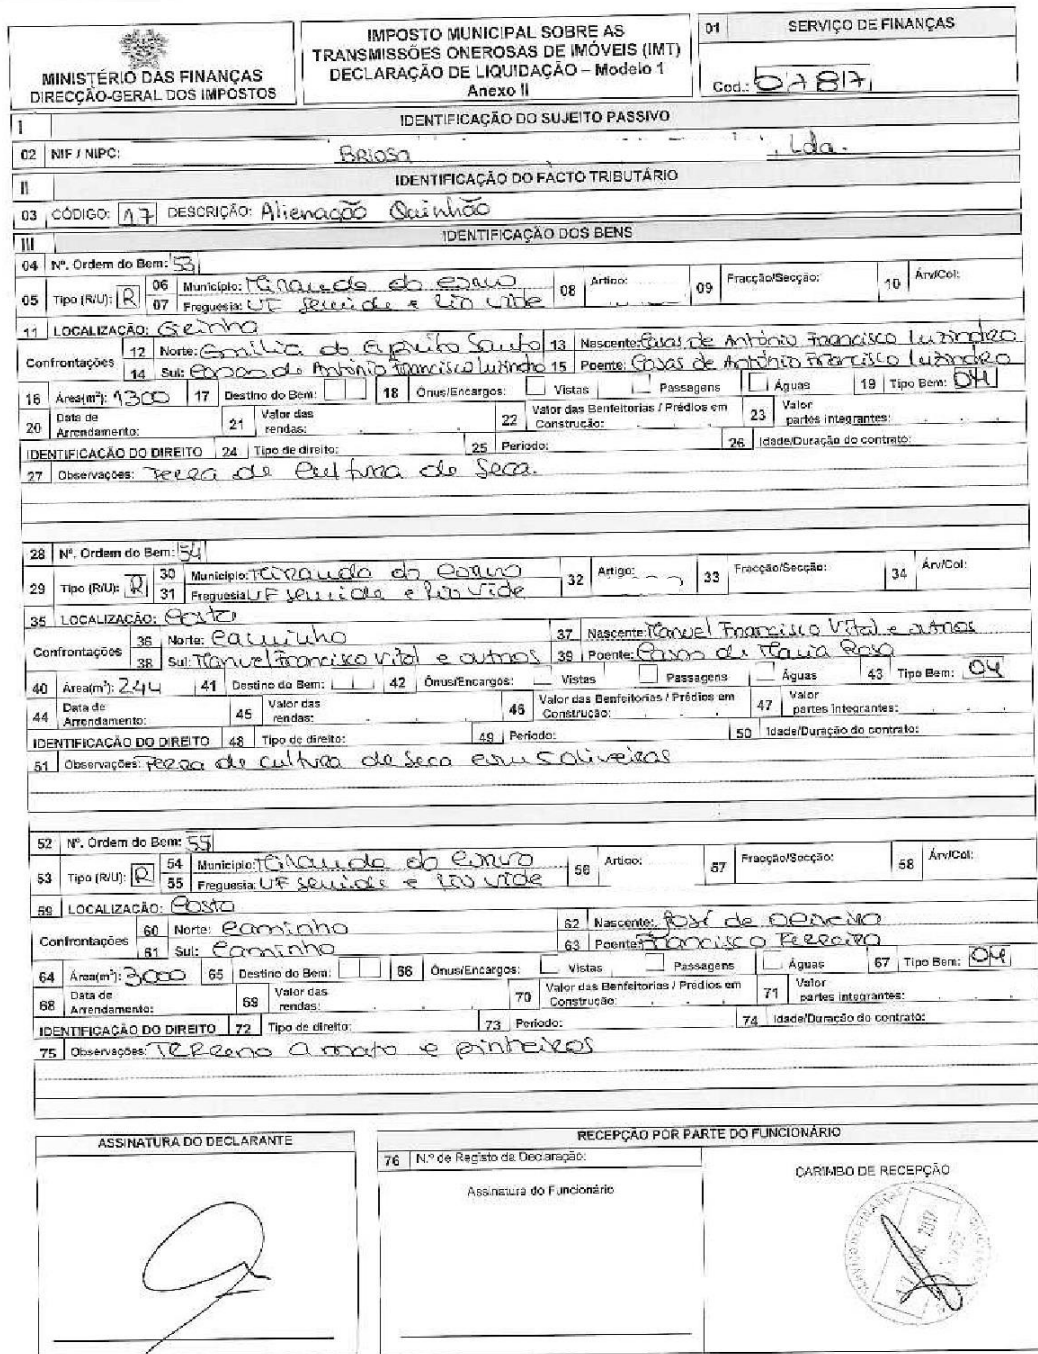 MINISTÉRIO DAS FINANÇAS
DIRECÇÃO-GERAL DOS IMPOSTOS
IMPOSTO MUNICIPAL SOBRE AS
TRANSMISSÕES ONEROSAS DE IMÓVEIS (IMT)
DECLARAÇÃO DE LIQUIDAÇÃO – Modelo 1
Anexo II
01 SERVIÇO DE FINANÇAS
Cod.: 07817
I IDENTIFICAÇÃO DO SUJEITO PASSIVO
02 NIF / NIPC: Briosa , Lda.
II IDENTIFICAÇÃO DO FACTO TRIBUTÁRIO
03 CÓDIGO: 17 DESCRIÇÃO: Alienação Quinhão
III IDENTIFICAÇÃO DOS BENS
04 Nº. Ordem do Bem: 53
05 Tipo (R/U): R 06 Município: Miranda do Corvo 08 Artigo: 09 Fracção/Secção: 10 Árv/Col:
07 Freguesia: UF Semide e Rio Vide
11 LOCALIZAÇÃO: Geinho
Confrontações 12 Norte: Emilia do Espirito Santo 13 Nascente: Casas de António Francisco Luzindro
14 Sul: Casas de António Francisco Luzindro 15 Poente: Casas de António Francisco Luzindro
16 Área(m²): 1300 17 Destino do Bem: 18 Ónus/Encargos: Vistas Passagens Águas 19 Tipo Bem: 04
20 Data de Arrendamento: 21 Valor das rendas: 22 Valor das Benfeitorias / Prédios em Construção: 23 Valor partes integrantes:
IDENTIFICAÇÃO DO DIREITO 24 Tipo de direito: 25 Periodo: 26 Idade/Duração do contrato:
27 Observações: Terra de Cultura de Seca.
28 Nº. Ordem do Bem: 54
29 Tipo (R/U): R 30 Município: Miranda do Corvo 32 Artigo: 33 Fracção/Secção: 34 Árv/Col:
31 Freguesia: UF Semide e Rio Vide
35 LOCALIZAÇÃO: Costa
Confrontações 36 Norte: Caminho 37 Nascente: Manuel Francisco Vital e outros
38 Sul: Manuel Francisco Vital e outros 39 Poente: Casas de Maria Rosa
40 Área(m²): 244 41 Destino do Bem: 42 Ónus/Encargos: Vistas Passagens Águas 43 Tipo Bem: 04
44 Data de Arrendamento: 45 Valor das rendas: 46 Valor das Benfeitorias / Prédios em Construção: 47 Valor partes integrantes:
IDENTIFICAÇÃO DO DIREITO 48 Tipo de direito: 49 Periodo: 50 Idade/Duração do contrato:
51 Observações: Terra de cultura de seca com 5 oliveiras
52 Nº. Ordem do Bem: 55
53 Tipo (R/U): R 54 Município: Miranda do Corvo 56 Artigo: 57 Fracção/Secção: 58 Árv/Col:
55 Freguesia: UF Semide e Rio Vide
59 LOCALIZAÇÃO: Costa
Confrontações 60 Norte: Caminho 62 Nascente: José de Oliveira
61 Sul: Caminho 63 Poente: Francisco Ferreira
64 Área(m²): 3000 65 Destino do Bem: 66 Ónus/Encargos: Vistas Passagens Águas 67 Tipo Bem: 04
68 Data de Arrendamento: 69 Valor das rendas: 70 Valor das Benfeitorias / Prédios em Construção: 71 Valor partes integrantes:
IDENTIFICAÇÃO DO DIREITO 72 Tipo de direito: 73 Periodo: 74 Idade/Duração do contrato:
75 Observações: Terreno a mato e pinheiros
ASSINATURA DO DECLARANTE
RECEPÇÃO POR PARTE DO FUNCIONÁRIO
76 N.º de Registo da Declaração:
Assinatura do Funcionário
CARIMBO DE RECEPÇÃO